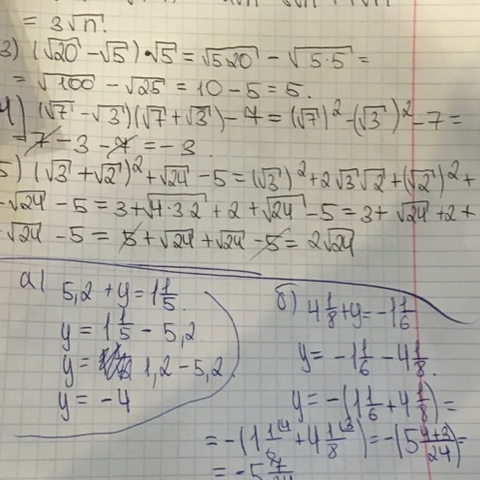 = 3√n.
3) (√20 - √5)·√5 = √5·20 - √5·5 =
= √100 - √25 = 10 - 5 = 5.
4) (√7 - √3)(√7 + √3) - 7 = (√7)² - (√3)² - 7 =
= 7 - 3 - 7 = -3
5) (√3 + √2)² + √24 - 5 = (√3)² + 2√3√2 + (√2)² +
+ √24 - 5 = 3 + √4·3·2 + 2 + √24 - 5 = 3 + √24 + 2 +
+ √24 - 5 = 5 + √24 + √24 - 5 = 2√24
а) 5,2 + y = 1 1/5
y = 1 1/5 - 5,2
y = 1,2 - 5,2
y = -4
б) 4 1/8 + y = -1 1/6
y = -1 1/6 - 4 1/8.
y = -(1 1/6 + 4 1/8) =
= -(1 1/6 ⁴ + 4 1/8 ³) = -(5 4+3/24) =
= -5 7/24